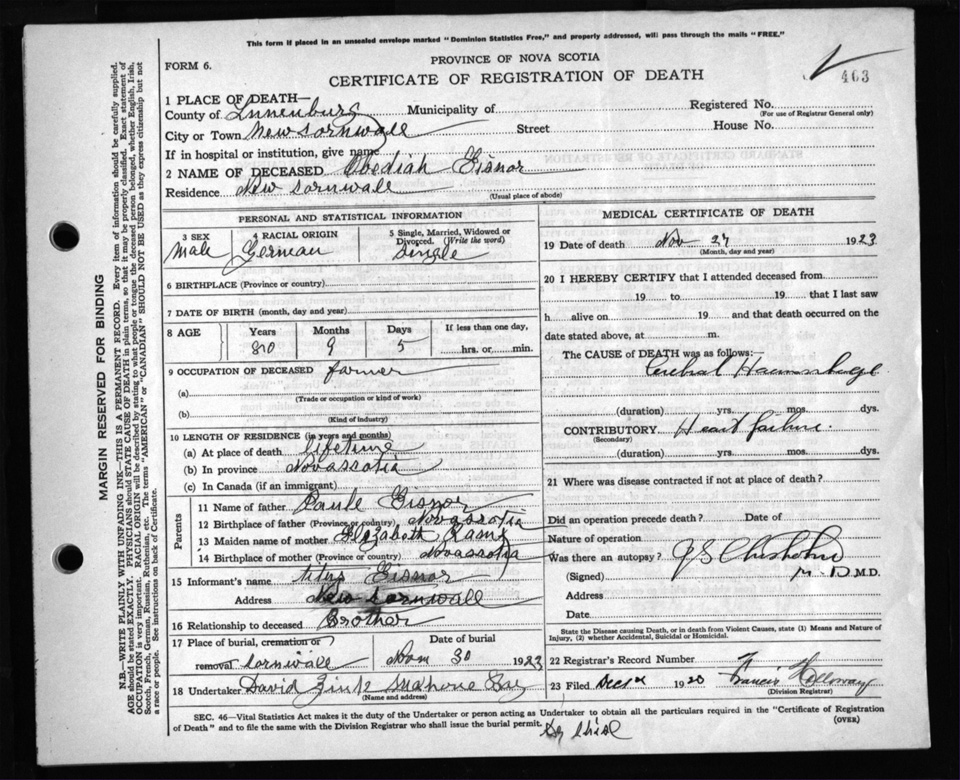 This form if placed in an unsealed envelope marked "Dominion Statistics Free," and properly addressed, will pass through the mails "FREE."
FORM 6.
PROVINCE OF NOVA SCOTIA
CERTIFICATE OF REGISTRATION OF DEATH
403
1 PLACE OF DEATH—
County of Lunenburg Municipality of Registered No.
(For use of Registrar General only)
City or Town New Cornwall Street House No.
If in hospital or institution, give name
2 NAME OF DECEASED Obediah Eisnor
Residence New Cornwall
(Usual place of abode)
PERSONAL AND STATISTICAL INFORMATION
3 SEX 4 RACIAL ORIGIN 5 Single, Married, Widowed or Divorced. (Write the word)
Male German Single
6 BIRTHPLACE (Province or country)
7 DATE OF BIRTH (month, day and year)
8 AGE Years Months Days If less than one day,
80 9 5 hrs. or min.
9 OCCUPATION OF DECEASED farmer
(a)
(Trade or occupation or kind of work)
(b)
(Kind of industry)
10 LENGTH OF RESIDENCE (in years and months)
(a) At place of death lifetime
(b) In province Novascotia
(c) In Canada (if an immigrant)
Parents
11 Name of father Paule Eisnor
12 Birthplace of father (Province or country) Novascotia
13 Maiden name of mother Elizabeth
14 Birthplace of mother (Province or country) Novascotia
15 Informant's name Titus Eisnor
Address New Cornwall
16 Relationship to deceased Brother
17 Place of burial, cremation or Date of burial
removal Cornwall 30 1923
18 Undertaker David Zink Mahone Bay
(Name and address)
MEDICAL CERTIFICATE OF DEATH
19 Date of death Nov 27 1923
(Month, day and year)
20 I HEREBY CERTIFY that I attended deceased from
19 to 19 that I last saw
h alive on 19 and that death occurred on the
date stated above, at m.
The CAUSE of DEATH was as follows:
Cerebral Haemorhage
(duration) yrs. mos. dys.
CONTRIBUTORY Heart failure.
(Secondary)
(duration) yrs. mos. dys.
21 Where was disease contracted if not at place of death?
Did an operation precede death? Date of
Nature of operation
Was there an autopsy?
(Signed) J S Chisholm M.D M.D.
Address
Date
State the Disease causing Death, or in death from Violent Causes, state (1) Means and Nature of
Injury, (2) whether Accidental, Suicidal or Homicidal.
22 Registrar's Record Number
23 Filed Dec 1st Francis Holloway
(Division Registrar)
SEC. 46—Vital Statistics Act makes it the duty of the Undertaker or person acting as Undertaker to obtain all the particulars required in the "Certificate of Registration
of Death" and to file the same with the Division Registrar who shall issue the burial permit.
(OVER)
MARGIN RESERVED FOR BINDING
N.B.—WRITE PLAINLY WITH UNFADING INK—THIS IS A PERMANENT RECORD. Every item of information should be carefully supplied.
AGE should be stated EXACTLY. PHYSICIANS should STATE CAUSE OF DEATH in plain terms, so that it may be properly classified. Exact statement of
OCCUPATION is very important. RACIAL ORIGIN will be described by stating to what people or tongue the deceased person belonged, whether English, Irish,
Scotch, French, German, Russian, Ruthenian, etc. The terms "AMERICAN" or "CANADIAN" SHOULD NOT BE USED as they express citizenship but not
a race or people. See instructions on back of Certificate.